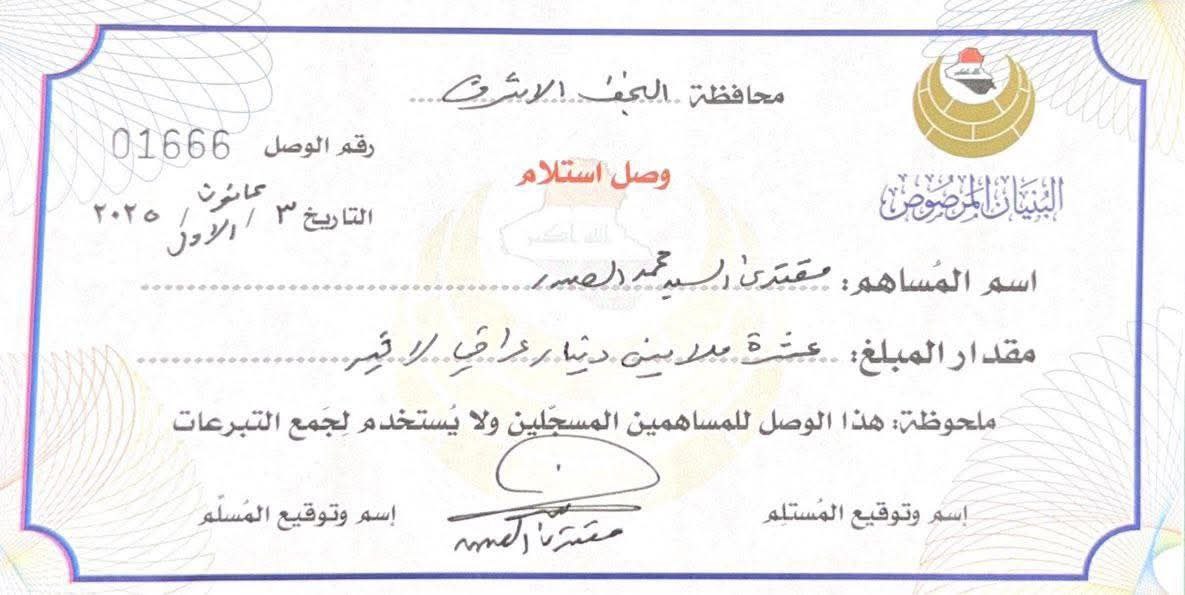 محافظة النجف الاشرف
البنيان المرصوص
الله اكبر
رقم الوصل 01666
وصل استلام
التاريخ ٣ / كانون الاول / ٢٠٢٥
اسم المُساهم: مقتدى السيد محمد الصدر
مقدار المبلغ: عشرة ملايين دينار عراقي لا غير
ملحوظة: هذا الوصل للمساهمين المسجّلين ولا يُستخدم لِجَمع التبرعات
إسم وتوقيع المُستلم
إسم وتوقيع المُسلّم
مقتدى الصدر